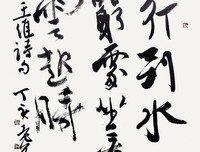 行到水
窮處坐看
雲起時
王維詩句丁亥